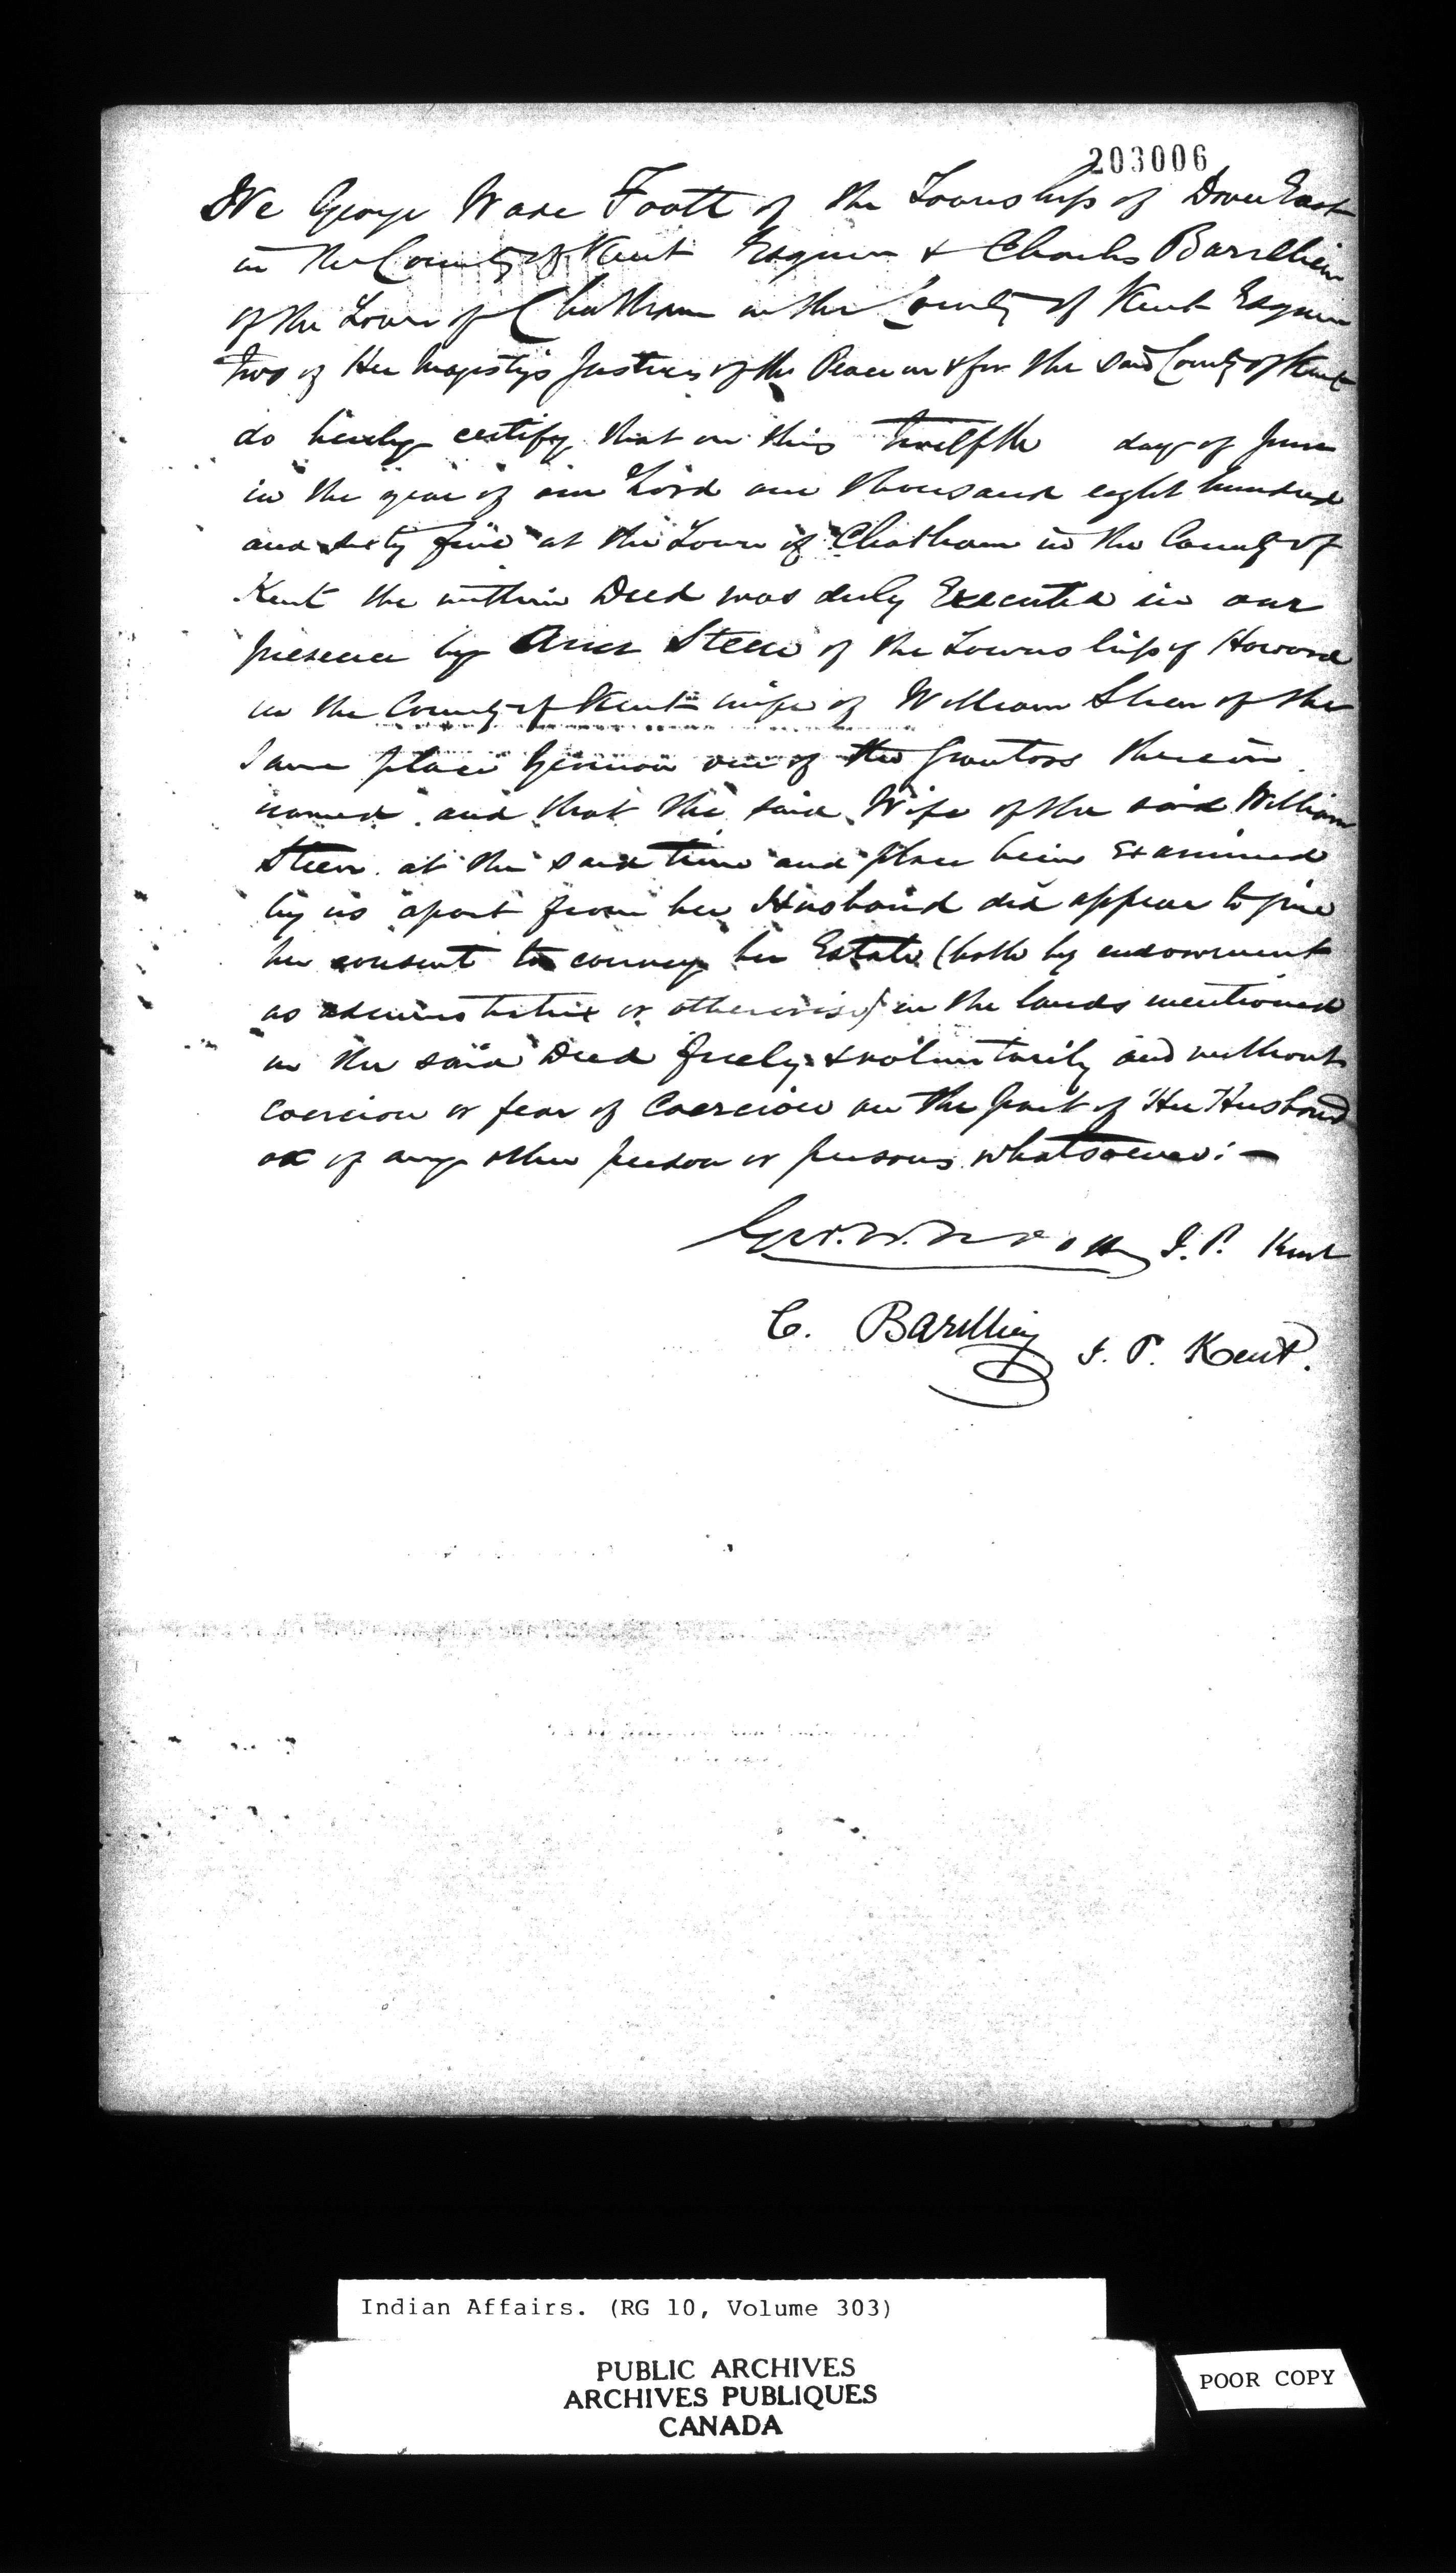 203006
We George Wade Foott of the Township of Dover East
in the County of Kent Esquire & Charles Barellien
of the Town of Chatham in the County of Kent Esquire
two of Her Majesty's Justices of the Peace in & for the said County of Kent
do hereby certify that on this twelfth day of June
in the year of our Lord one thousand eight hundred
and sixty five at the Town of Chatham in the County of
Kent the within Deed was duly Executed in our
presence by Ann Steen of the Township of Howard
in the County of Kent wife of William Steen of the
same place Yeoman one of the Grantors therein
named and that the said Wife of the said William
Steen at the said time and place being Examined
by us apart from her Husband did appear to give
her consent to convey her Estate (both by endowment
as administratrix or otherwise) in the lands mentioned
in the said Deed freely & voluntarily and without
Coercion or fear of Coercion on the part of Her Husband
or of any other person or persons whatsoever:—
Geo. W. Foott J. P. Kent
C. Barellien J. P. Kent.
Indian Affairs. (RG 10, Volume 303)
PUBLIC ARCHIVES
ARCHIVES PUBLIQUES
CANADA
POOR COPY